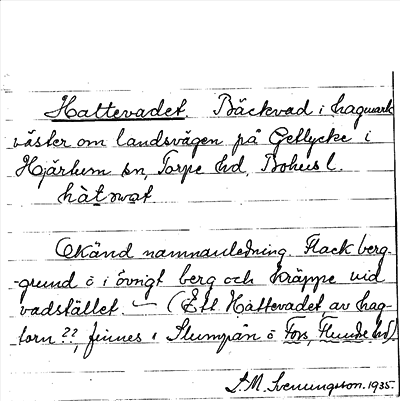 Hattevadet. Bäckvad i hagmark
väster om landsvägen på Getlycke i
Hjärtum sn, Torpe hd, Bohusl.
hàtəvat
Okänd namnanledning. Flack berg-
grund ö i övrigt berg och kräppe vid
vadstället. — (Ett Hattevadet av hag-
torn ??, finnes i Slumpån ö Fors, Flundre hd).
M. Svenungson. 1935.